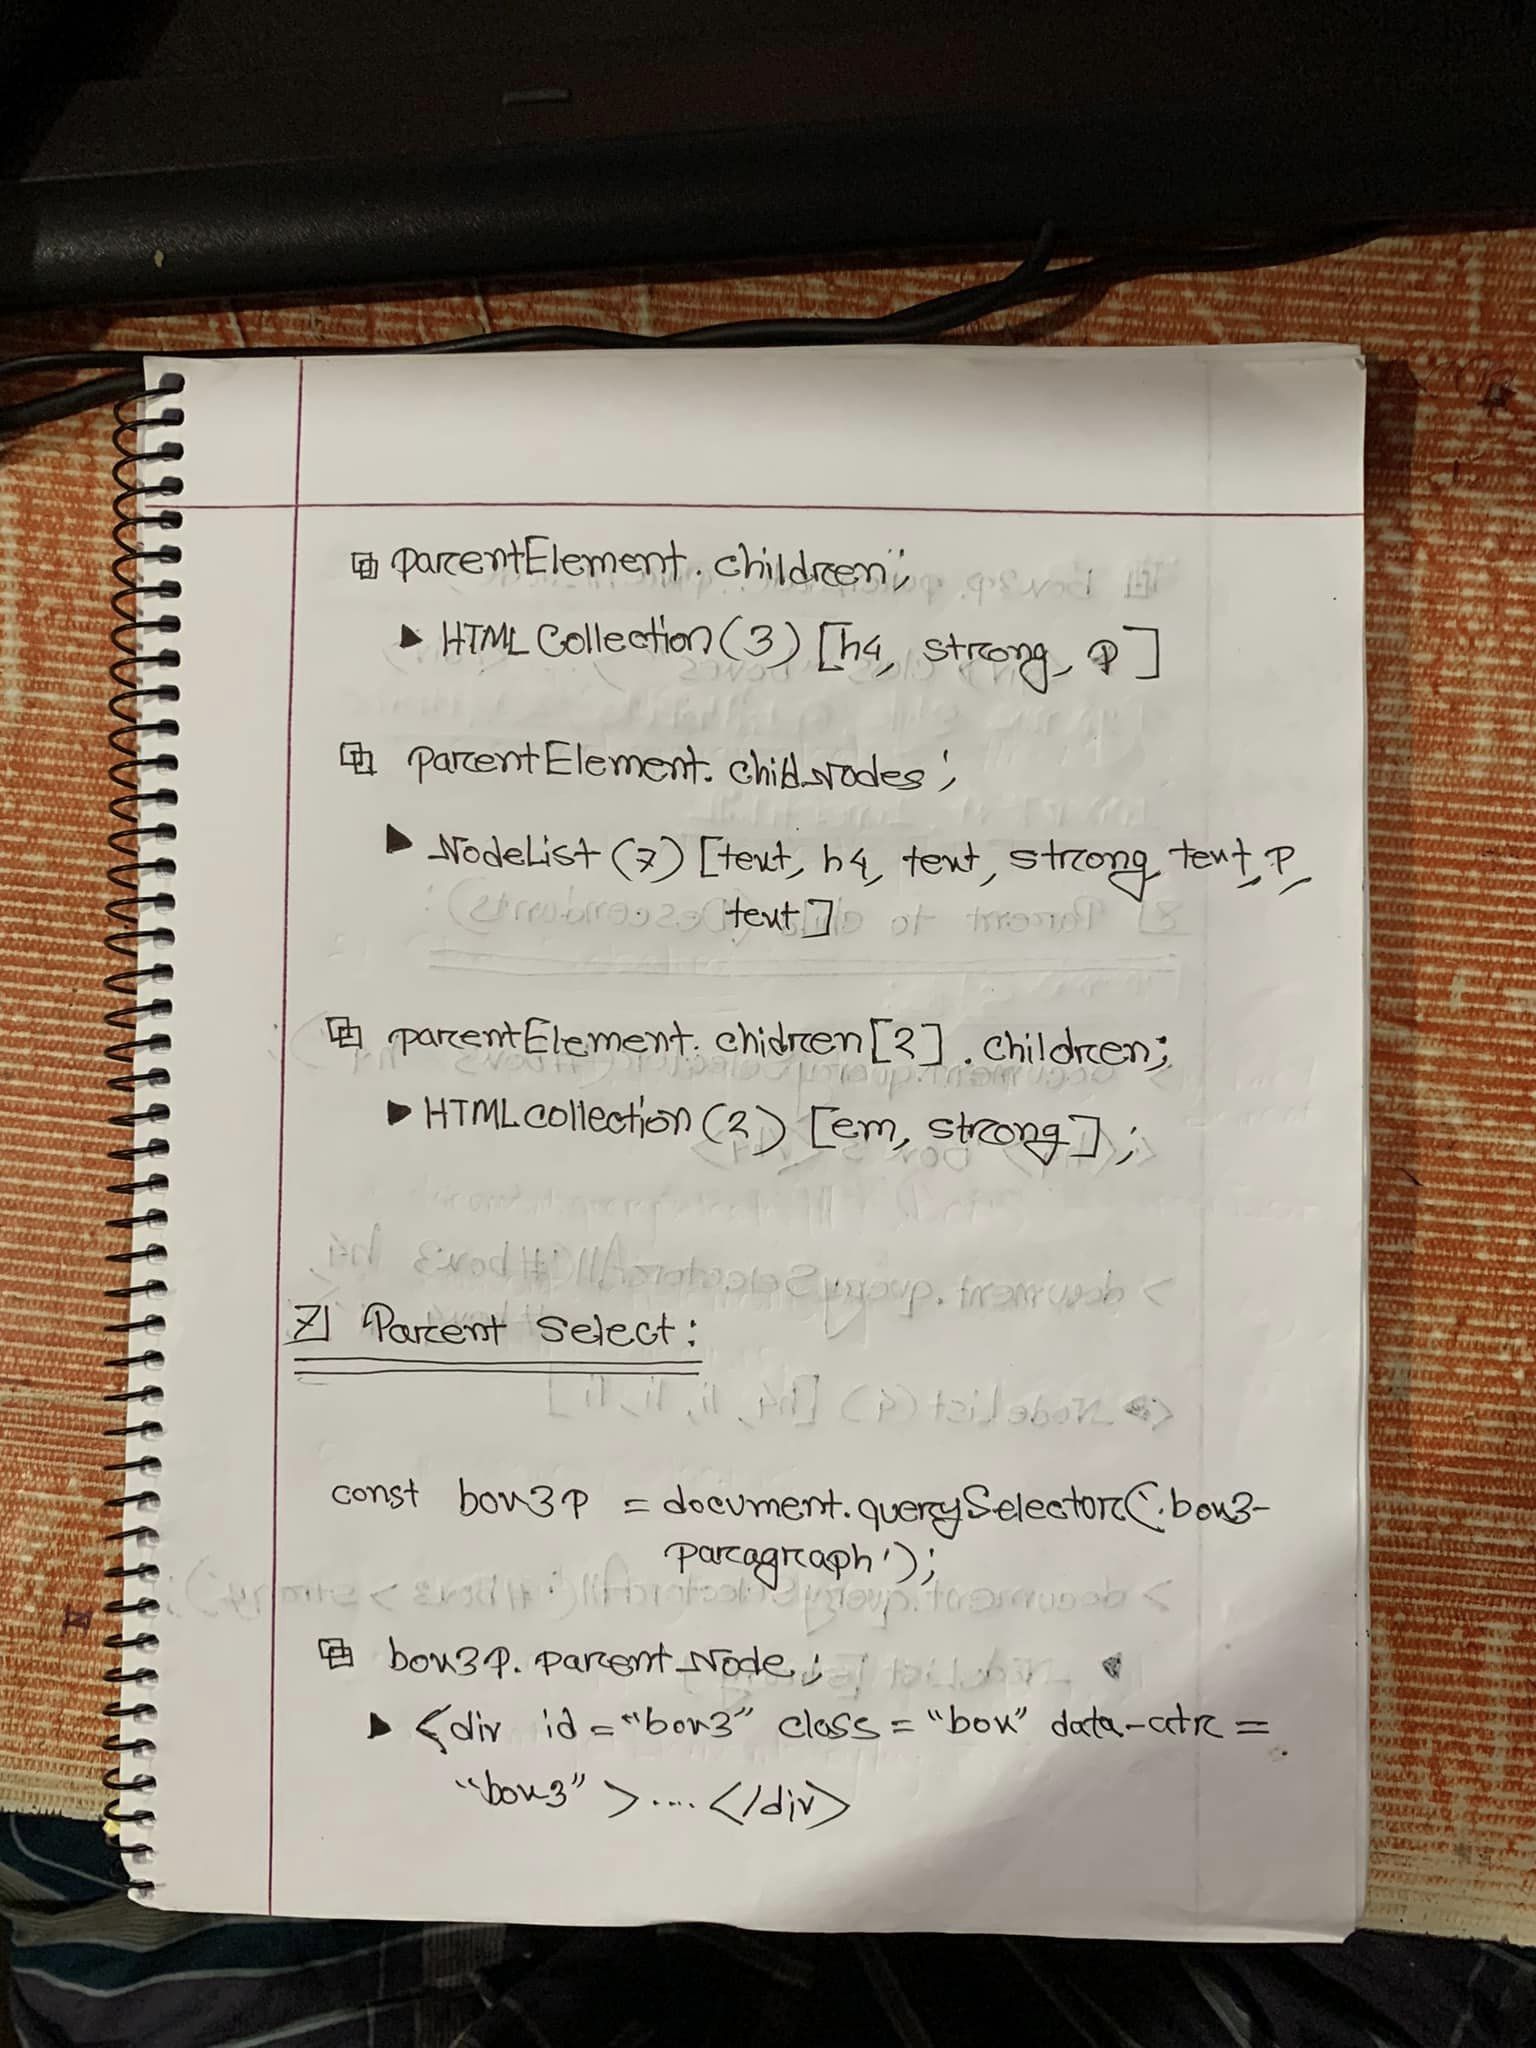 parentElement.children;
▶ HTMLCollection(3) [h4, strong, p]
parentElement.childNodes;
▶ NodeList(7) [text, h4, text, strong, text, p,
text]
parentElement.chidren[2].children;
▶ HTMLcollection(2) [em, strong];
7] Parent Select:
const box3p = document.querySelector('.box3-
paragraph');
box3p.parentNode;
▶ <div id="box3" class="box" data-atr=
"box3">....</div>